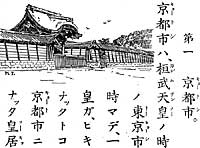 第一 京都市。
京都市ハ、桓武天皇ノ時
ノ東京市
時マデ、一
皇ガヒキ
ナッタトコ
京都市ニ
ナッタ皇居